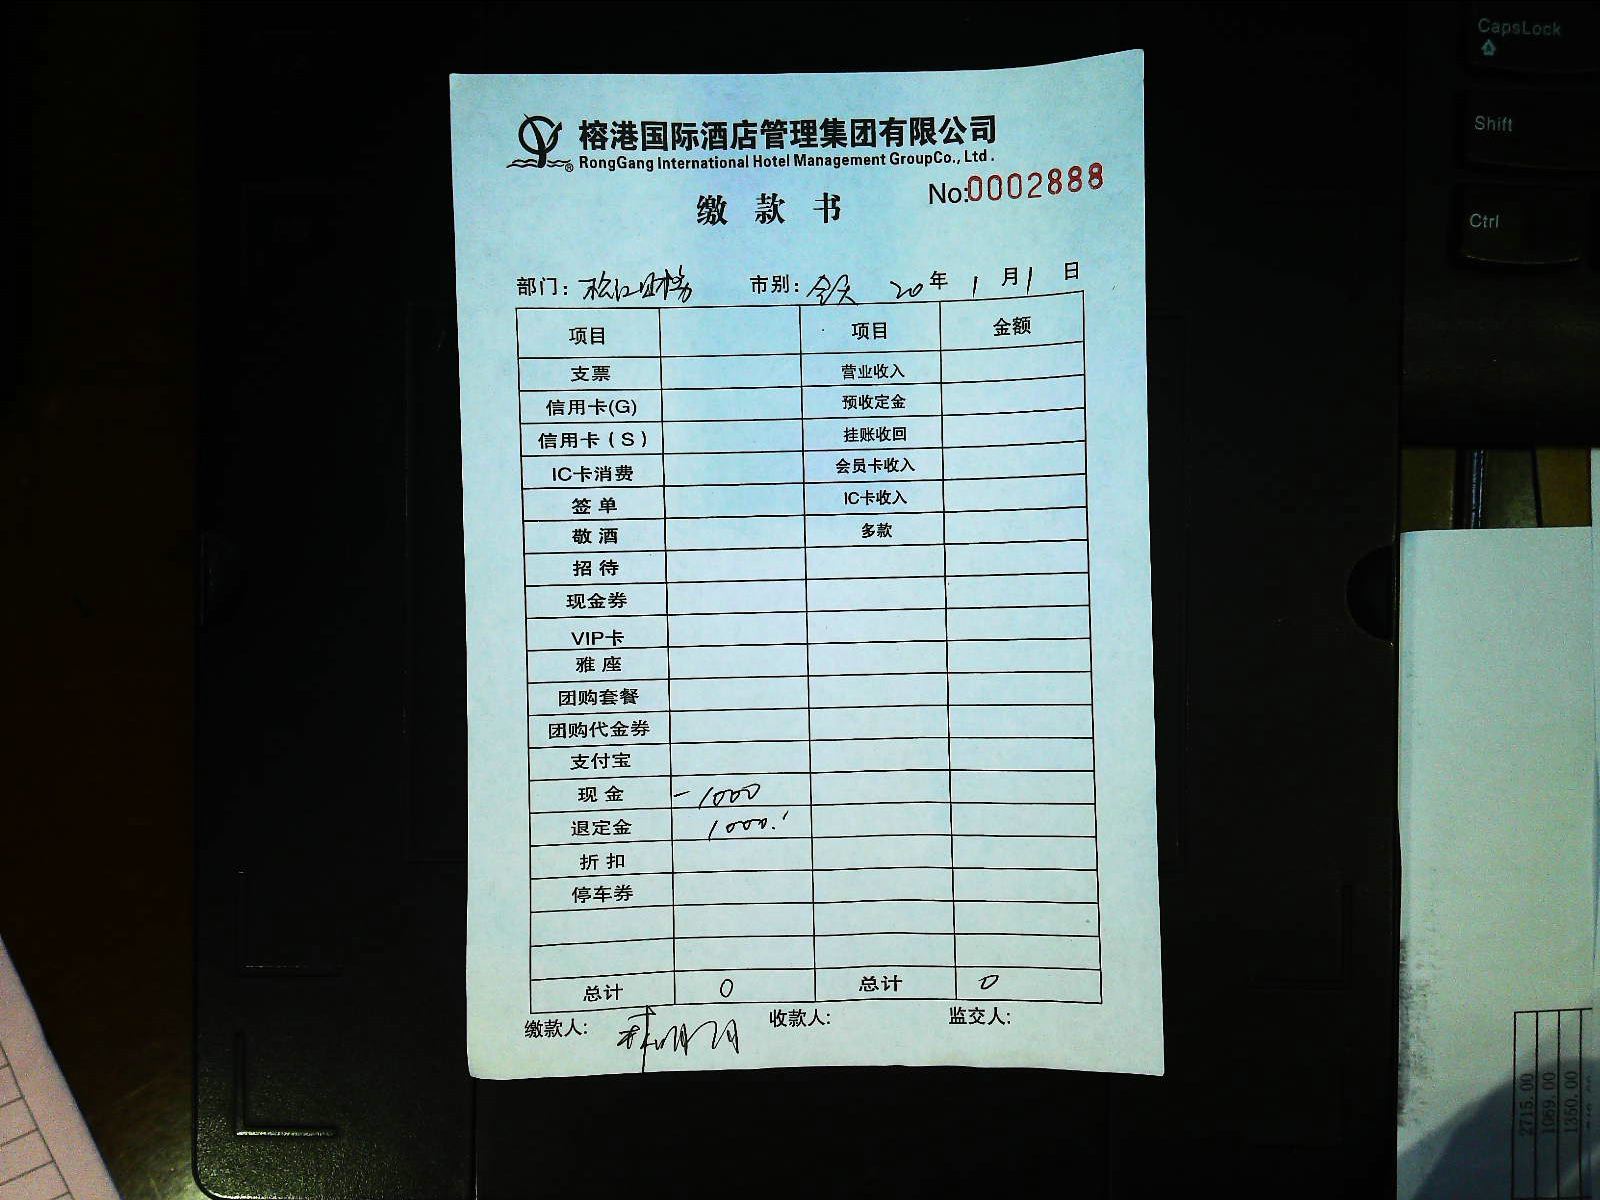 榕港国际酒店管理集团有限公司
RongGang International Hotel Management GroupCo., Ltd.
No:0002888
缴 款 书
部门: 松江 市别: 全天 20年 1月1日
项目 项目 金额
支票 营业收入
信用卡(G) 预收定金
信用卡（S） 挂账收回
IC卡消费 会员卡收入
签 单 IC卡收入
敬 酒 多款
招 待
现金券
VIP卡
雅 座
团购套餐
团购代金券
支付宝
现 金 -1000
退定金 1000.
折 扣
停车券
总计 0 总计 0
缴款人: 收款人: 监交人:
CapsLock
Shift
Ctrl
2715.00
1069.00
1350.00